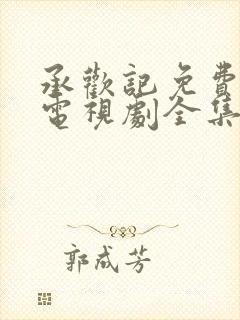 承歡記免費
電視劇全集
郭成芳